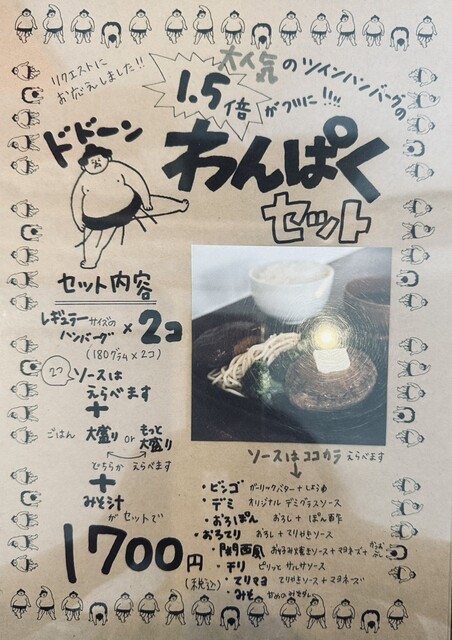 リクエストに
おこたえしました!!
大人気のツインハンバーグの
1.5倍がついに!!!!
ドドーン
わんぱく
セット
セット内容
レギュラーサイズの
ハンバーグ×2コ
(180グラム×2コ)
2コ ソースは
えらべます
+
ごはん 大盛り or もっと大盛り
どちらか えらべます
+
みそ汁
がセットで
1700円
(税込)
ソースはココカラえらべます
・ビンゴ ガーリックバター+しょうゆ
・デミ オリジナルデミグラスソース
・おろぽん おろし+ぽん酢
・おろテリ おろし+てりやきソース
・関西風 お好み焼きソース+マヨネーズ+かつおぶし
・チリ ピリッとサルサソース
・てりマヨ てりやきソース+マヨネーズ
・みそ